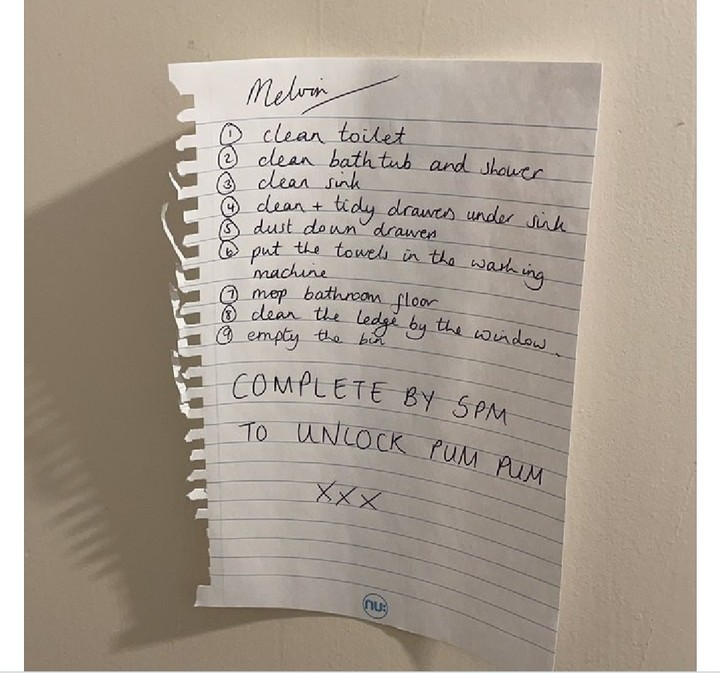 Melvin
① clean toilet
② clean bath tub and shower
③ clean sink
④ clean + tidy drawers under sink
⑤ dust down drawers
⑥ put the towels in the washing
machine
⑦ mop bathroom floor
⑧ clean the ledge by the window.
⑨ empty the bin
COMPLETE BY 5PM
TO UNLOCK PUM PUM
XXX
nu: